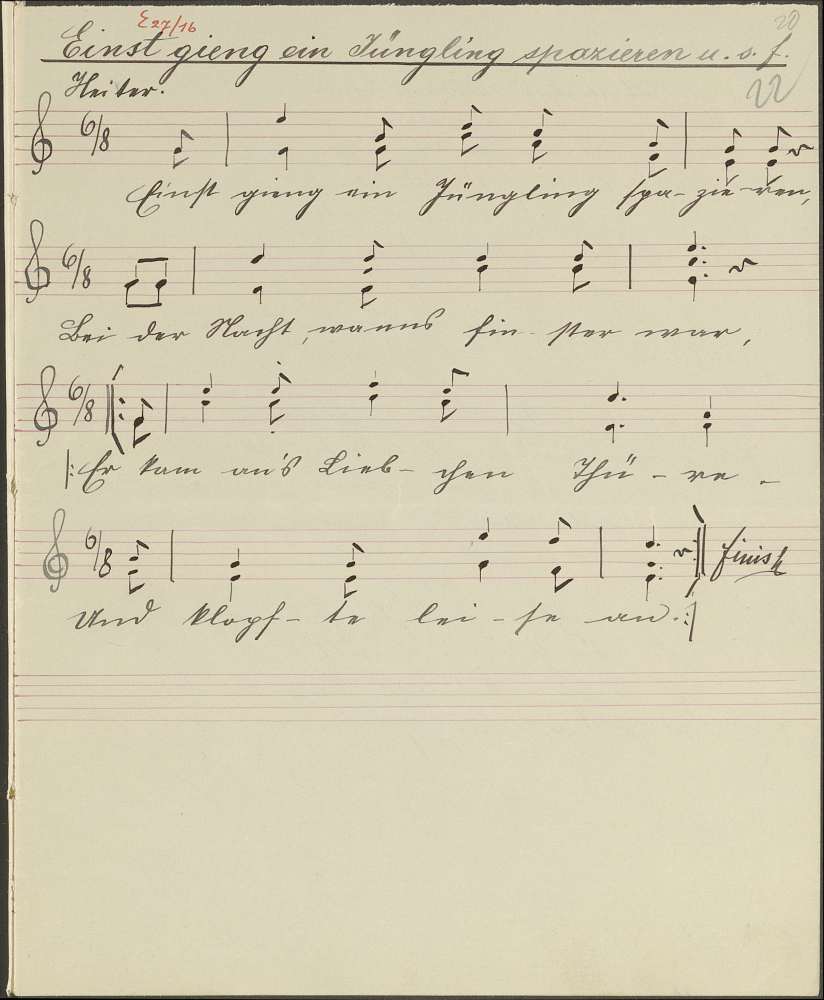 E 27/16
20
Einst gieng ein Jüngling spazieren u. s. f.
Heiter.
22
6/8
Einst gieng ein Jüngling spa- zie- ren,
6/8
Bei der Nacht, wanns fin- ster war,
6/8
|: Er kam an's Lieb- chen Thü - re -
6/8 finish
Und klopf- te lei - se an. :|